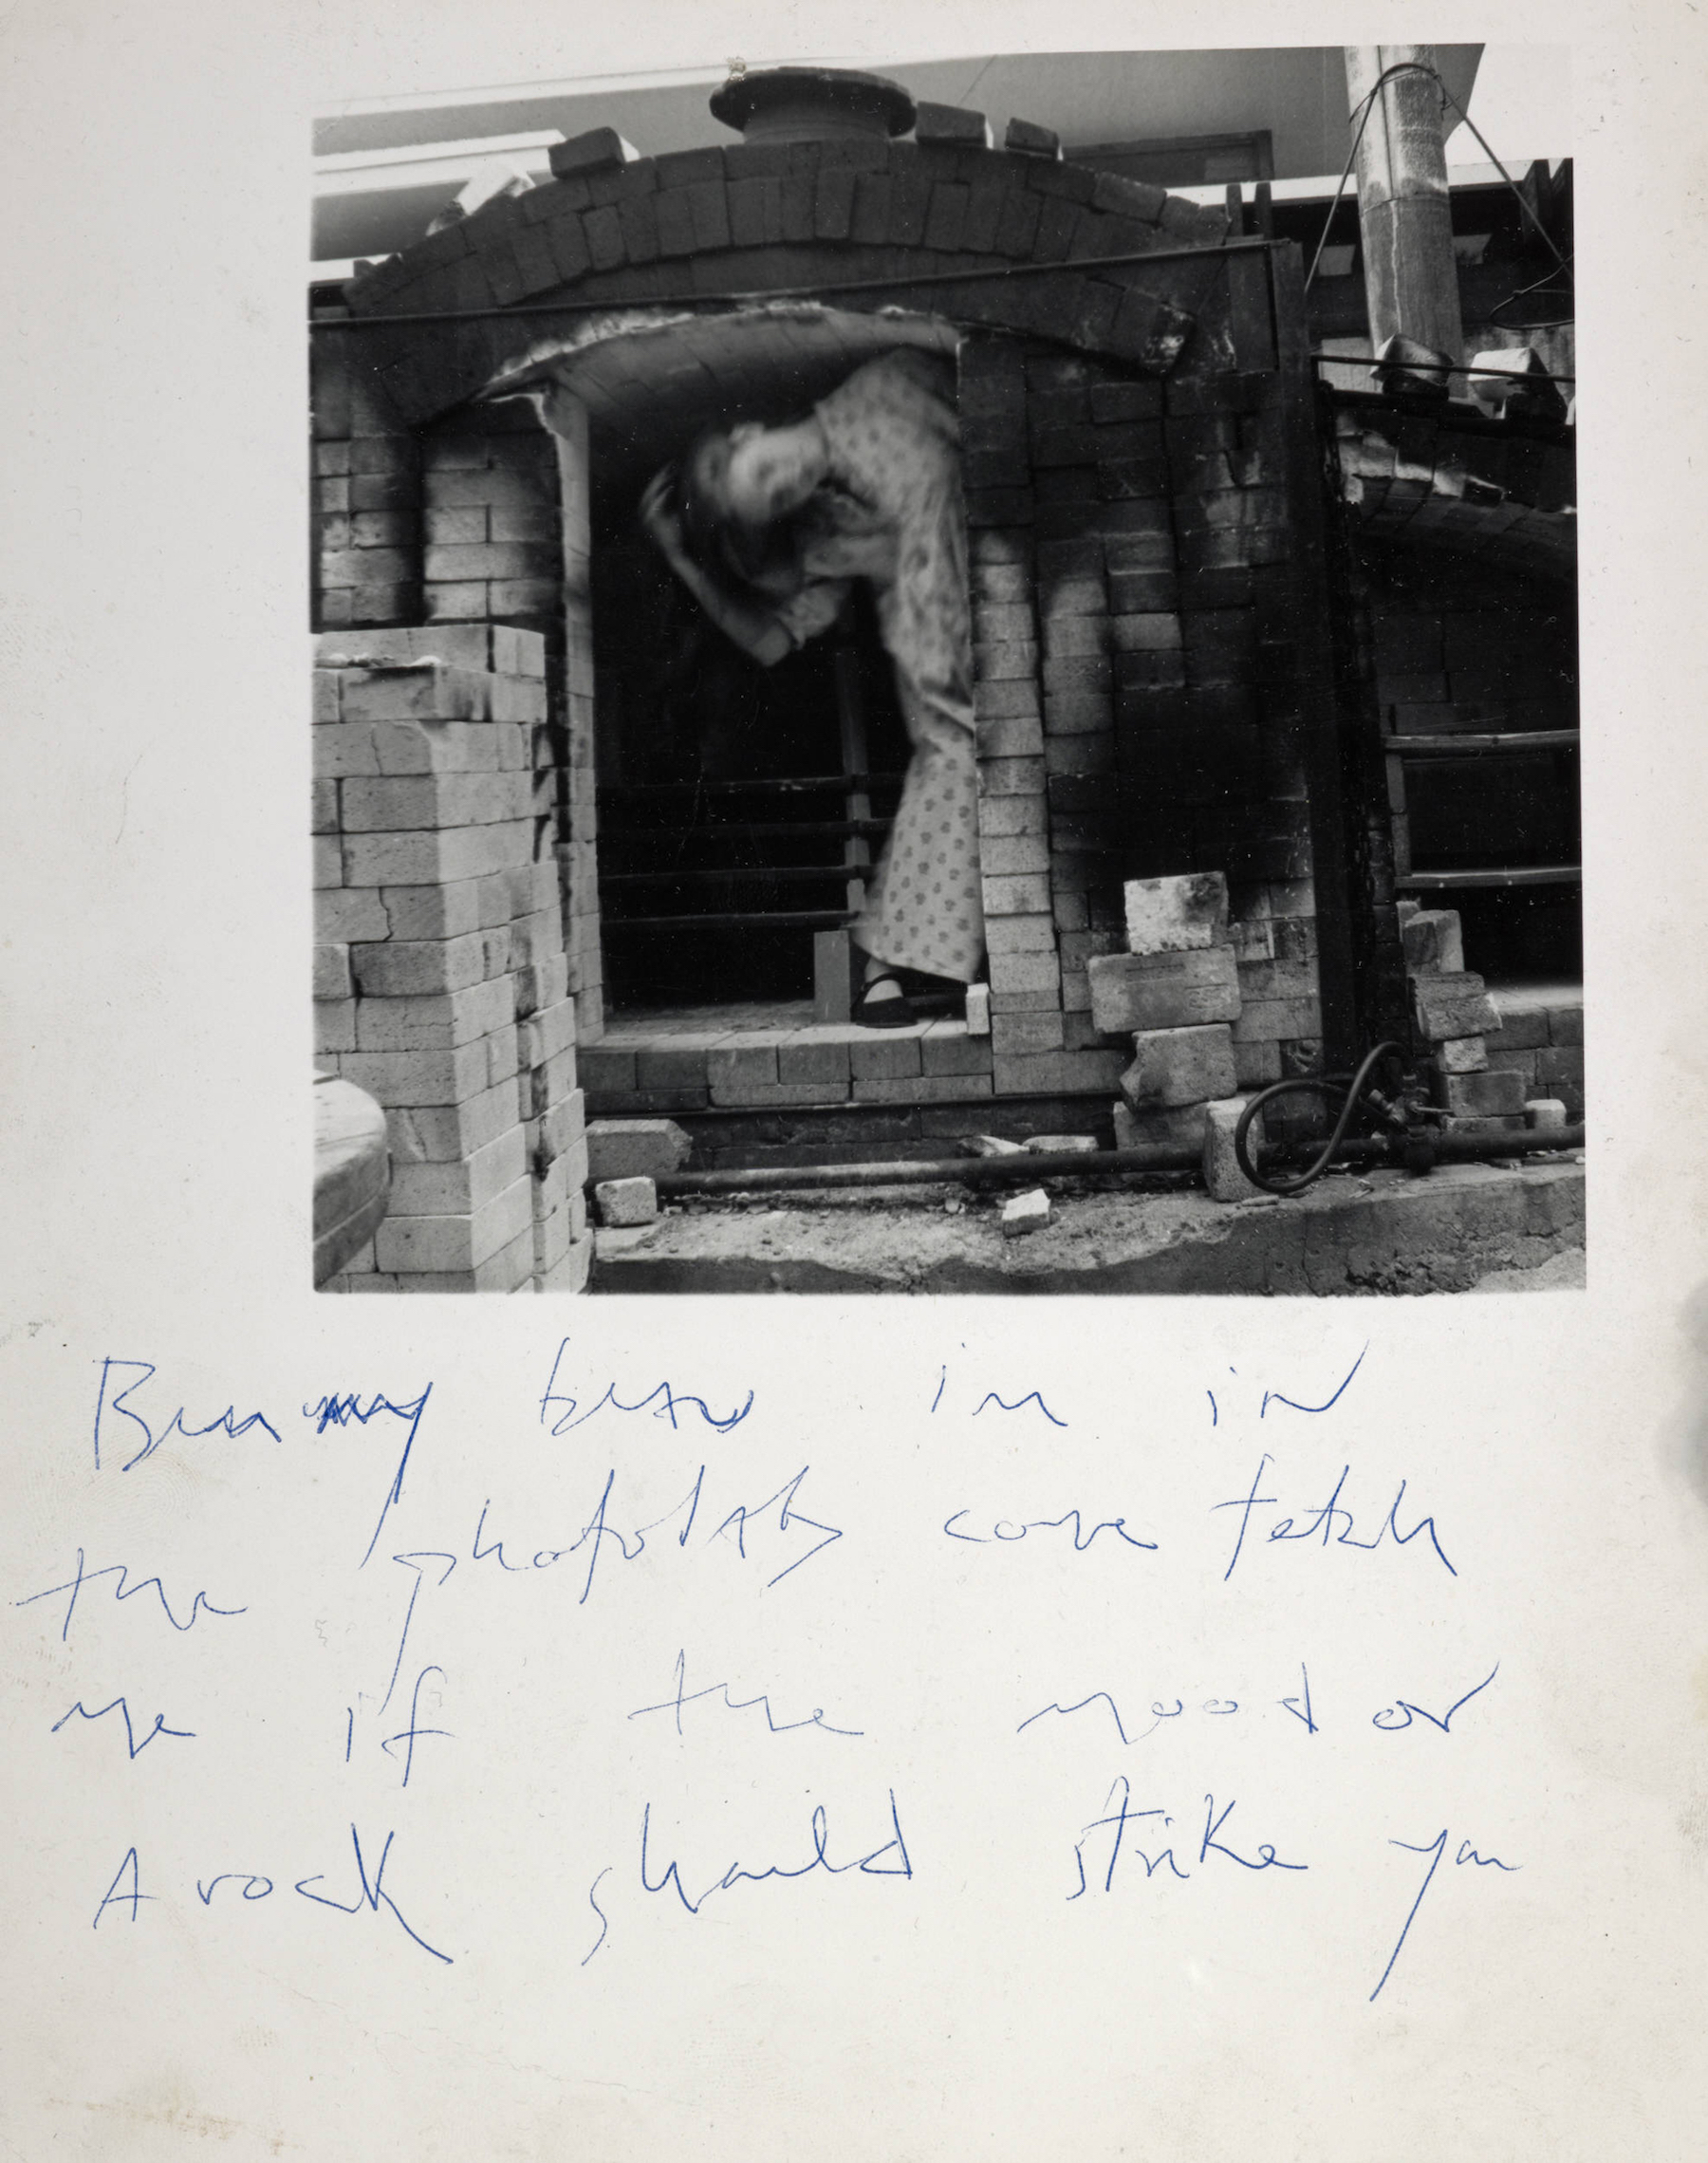 Benny bear im in
the photolab come fetch
me if the mood or
A rock should strike you